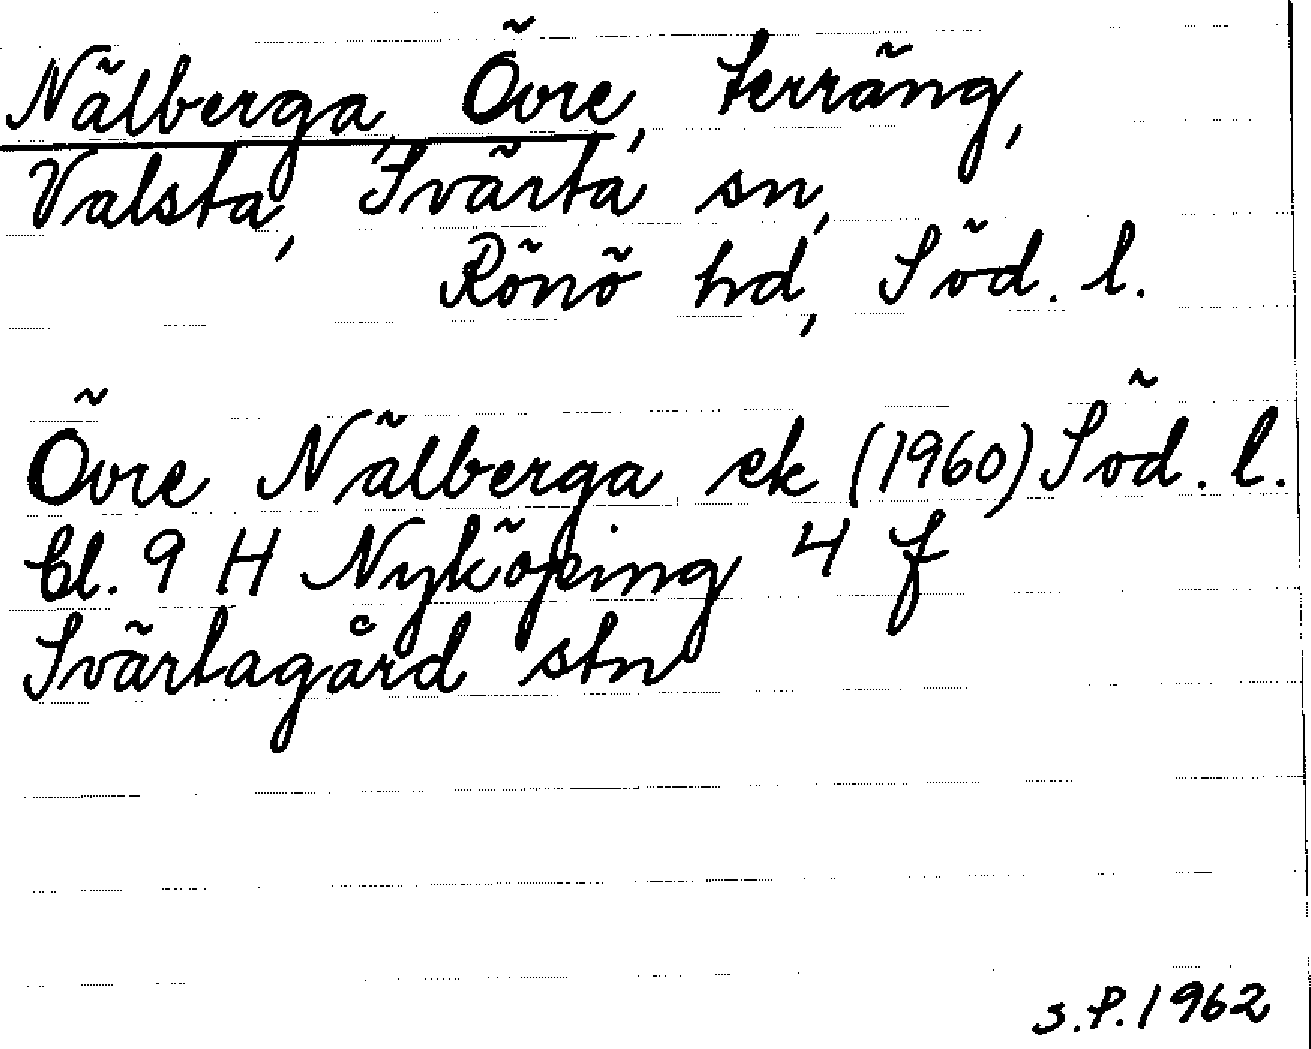 Nälberga, Övre, terräng,
Valsta, Svärta sn,
Rönö hd, Söd. l.
Övre Nälberga ek (1960) Söd. l.
bl. 9 H Nyköping 4 f
Svärtagård stn
S.P. 1962